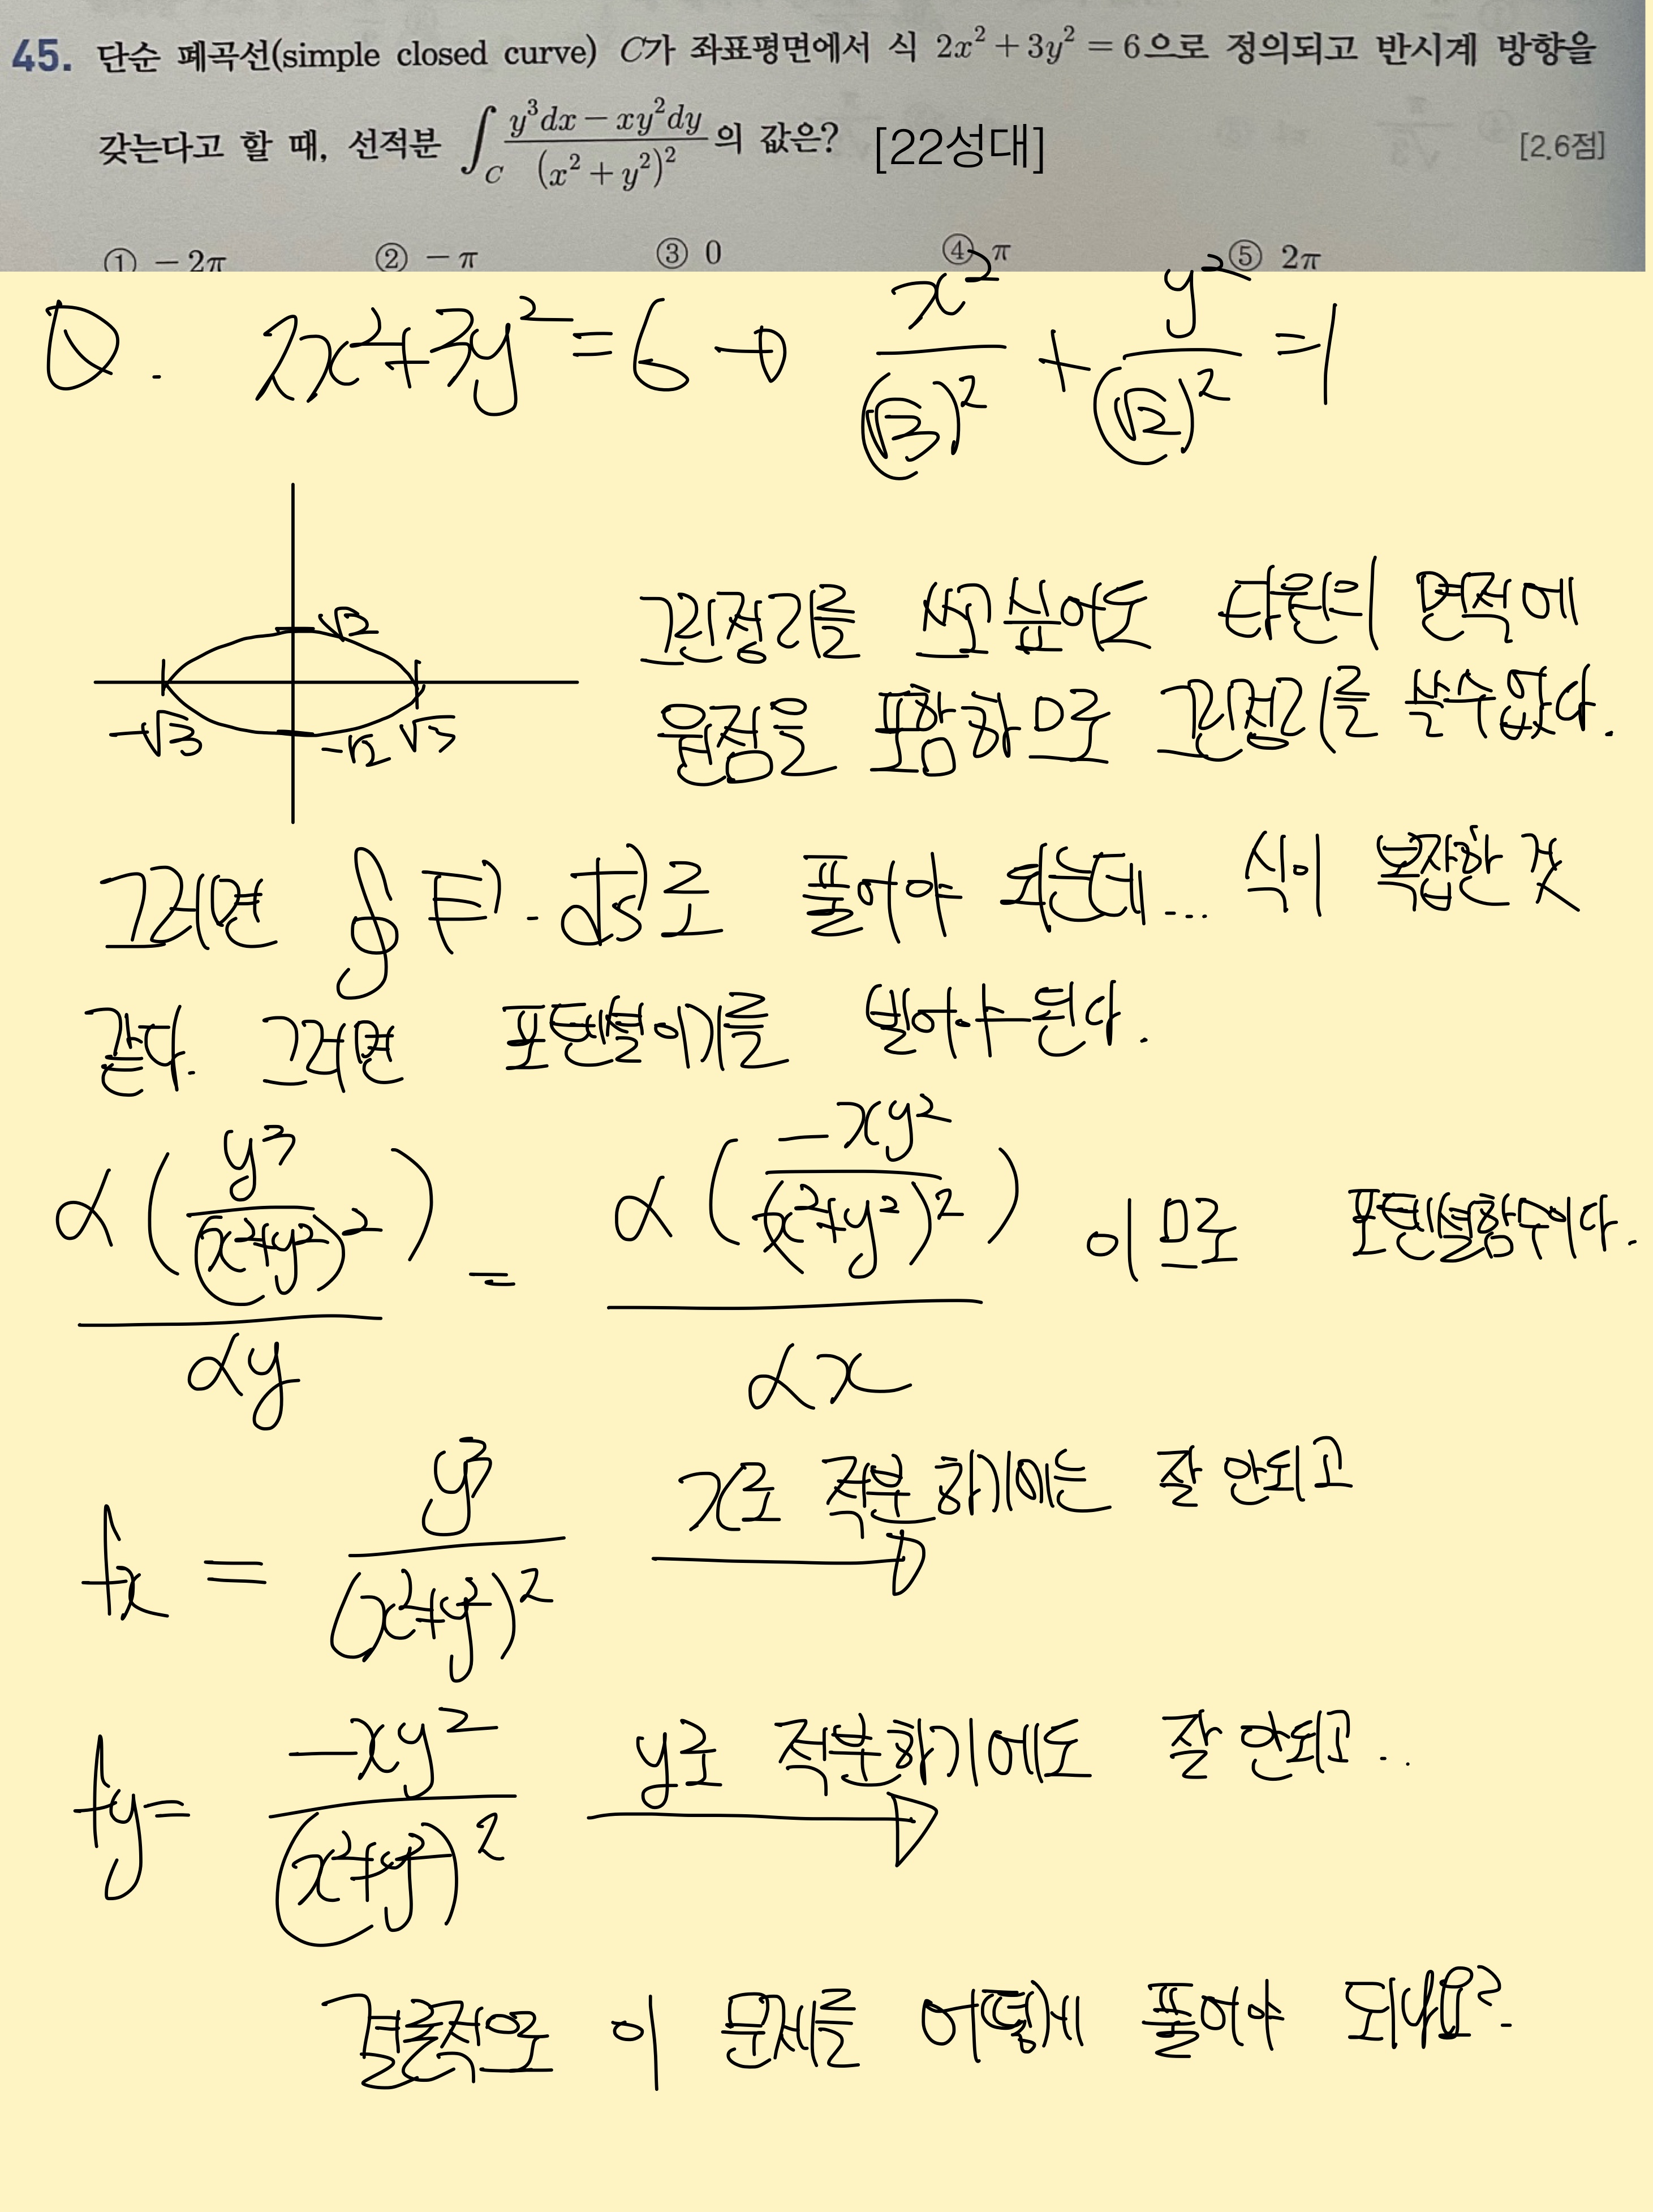 45. 단순 폐곡선(simple closed curve) C가 좌표평면에서 식 2x² + 3y² = 6으로 정의되고 반시계 방향을
갖는다고 할 때, 선적분 ∫_C (y³dx − xy²dy)/(x² + y²)² 의 값은? [22성대] [2.6점]
① −2π ② −π ③ 0 ④ π ⑤ 2π
Q. 2x²+3y²=6 → x²/(√3)² + y²/(√2)² = 1
√2
그린정리를 쓰고싶어도 타원의 면적에
원점을 포함하므로 그린정리를 쓸수없다.
-√3 -√2 √3
그러면 ∮F·ds로 풀어야 되는데... 식이 복잡한 것
같다. 그러면 포텐셜이기를 빌어야된다.
∂(y³/(x²+y²)²)/∂y = ∂(-xy²/(x²+y²)²)/∂x 이므로 포텐셜함수이다.
fx = y³/(x²+y²)² x로 적분하기에는 잘 안되고
fy = -xy²/(x²+y²)² y로 적분하기에도 잘 안되고..
결론적으로 이 문제를 어떻게 풀어야 되나요?